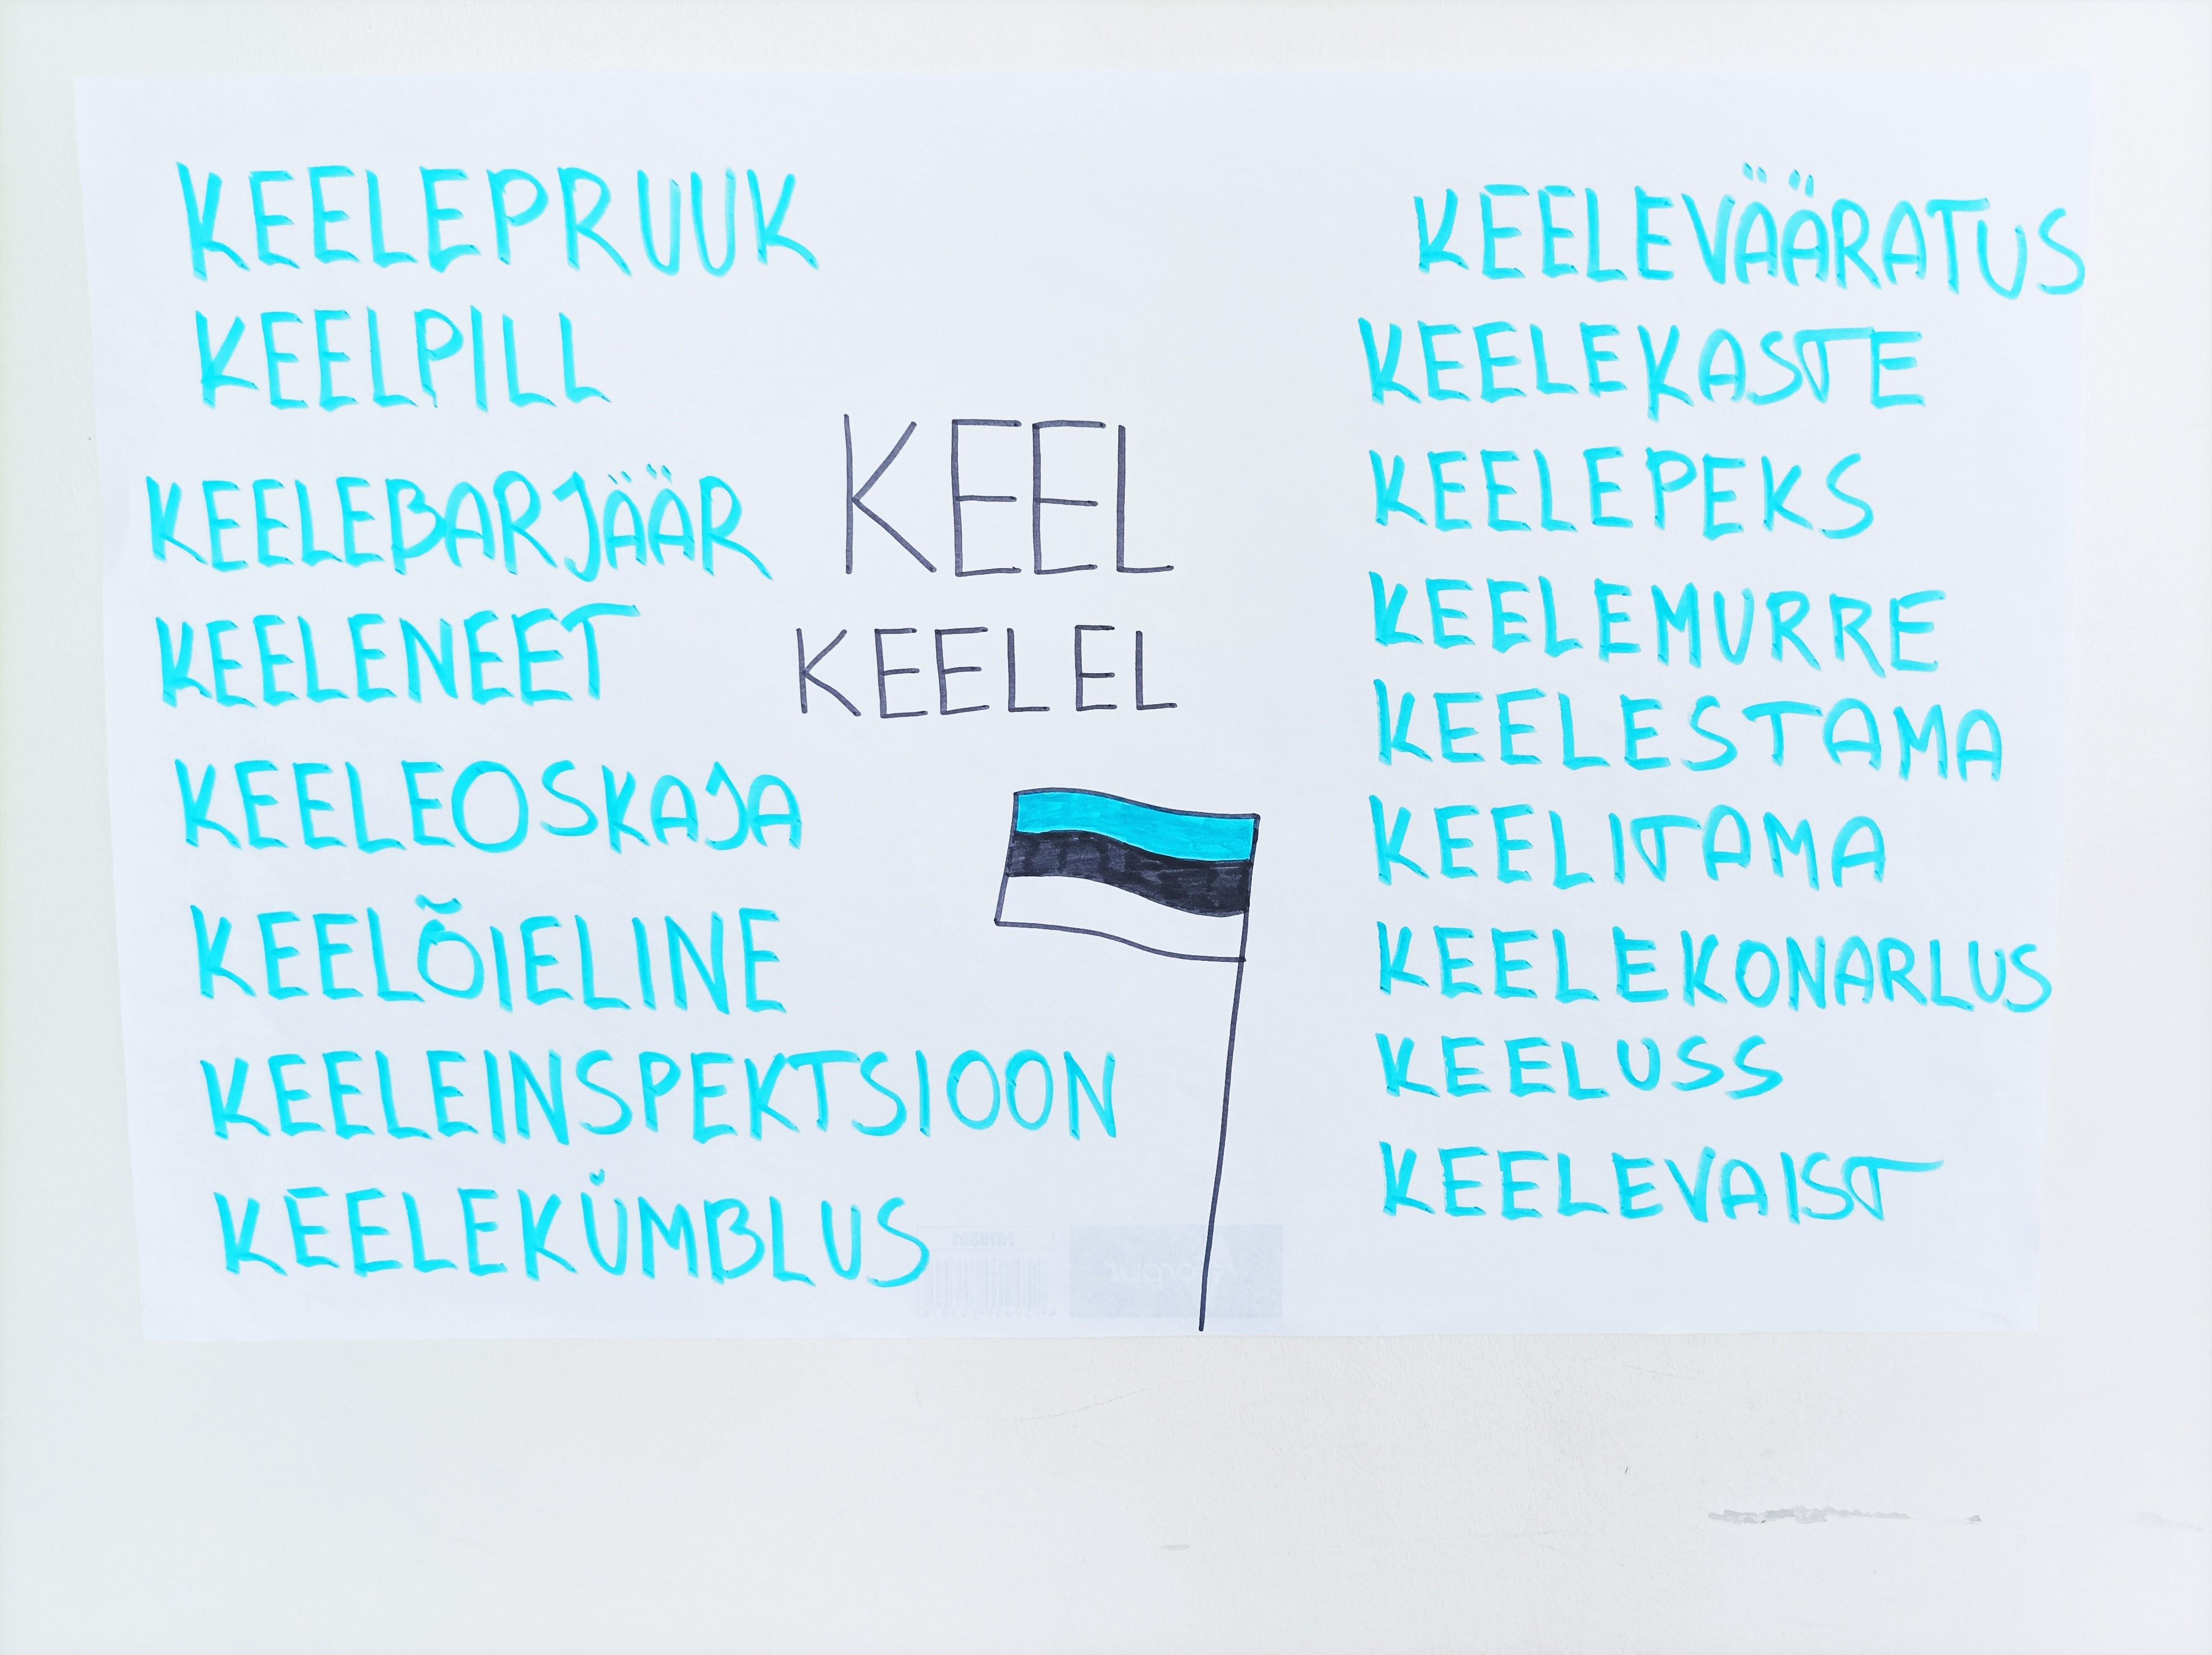 KEELEPRUUK
KEELPILL
KEELEBARJÄÄR
KEELENEET
KEELEOSKAJA
KEELÕIELINE
KEELEINSPEKTSIOON
KEELEKÜMBLUS
KEEL
KEELEL
KEELEVÄÄRATUS
KEELEKASTE
KEELEPEKS
KEELEMURRE
KEELESTAMA
KEELITAMA
KEELEKONARLUS
KEELUSS
KEELEVAIST